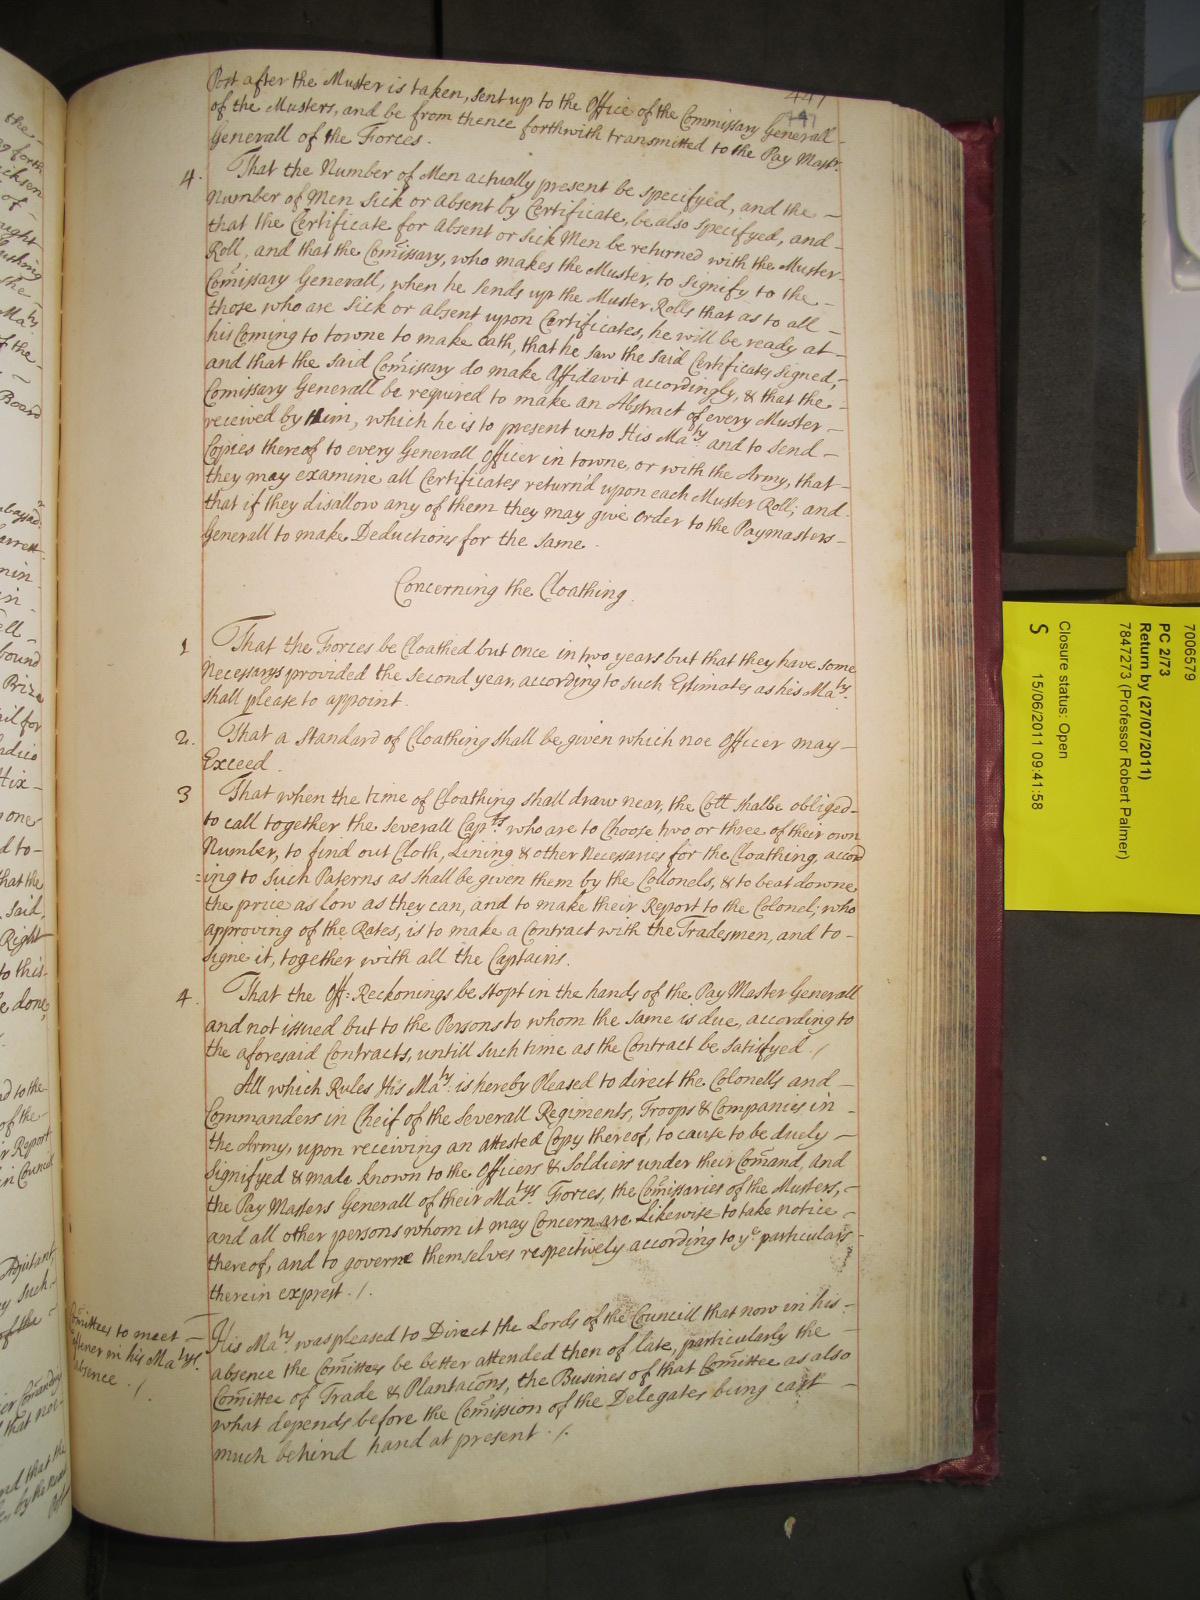 447
441
Post after the Muster is taken, sent up to the Office of the Commissary Generall
of the Musters, and be from thence forthwith transmitted to the Pay Mastr.
Generall of the Forces.
4. That the Number of Men actually present be specifyed, and the
Number of Men Sick or Absent by Certificate, be also specifyed, and
that the Certificate for Absent or Sick Men be returned with the Muster
Roll, and that the Com̃issary, who makes the Muster, to Signify to the
Com̃issary Generall, when he sends up the Muster Rolls that as to all
those who are Sick or Absent upon Certificates, he will be ready at
his Coming to towne to make oath, that he saw the said Certificates signed;
and that the said Com̃issary do make Affidavit accordingly, & that the
Com̃issary Generall be required to make an Abstract of every Muster
received by Him, which he is to present unto His Maty. and to send
Copies thereof to every Generall Officer in towne, or with the Army, that
they may examine all Certificates return'd upon each Muster Roll; and
that if they disallow any of them they may give order to the Paymasters
Generall to make Deductions for the same.
Concerning the Cloathing.
1 That the Forces be Cloathed but once in two years but that they have some
Necessarys provided the second year, according to such Estimates as his Maty.
shall please to appoint.
2. That a Standard of Cloathing shall be given which noe Officer may
Exceed.
3 That when the time of Cloathing shall draw near, the Coll shalbe obliged
to call together the severall Capts. who are to Choose two or three of their own
Number, to find out Cloth, Lining & other Necessaries for the Cloathing, accord
=ing to such Paterns as shall be given them by the Collonels, & to beat downe
the price as low as they can, and to make their Report to the Colonel; who
approving of the Rates, is to make a Contract with the Tradesmen, and to
signe it, together with all the Captains.
4. That the Off: Reckonings be stopt in the hands of the Pay Master Generall
and not issued but to the Persons to whom the same is due, according to
the aforesaid Contracts, untill such time as the Contract be satisfyed. /
All which Rules His Maty. is hereby Pleased to direct the Colonells and
Commanders in Cheif of the severall Regiments, Troops & Companies in
the Army, upon receiving an attested Copy thereof, to cause to be duely
Signifyed & made known to the Officers & Soldiers under their Com̃and, and
the Pay Masters Generall of their Matys. Forces, the Com̃issaries of the Musters,
and all other persons whom it may Concern are Likewise to take notice
thereof, and to governe themselves respectively according to ye particulars
therein exprest. /.
Com̃ittees to meet
oftener in his Matys.
absence. /
His Maty. was pleased to Direct the Lords of the Councill that now in his
absence the Com̃ittees be better attended then of late, particularly the
Com̃ittee of Trade & Plantacõns, the Busines of that Com̃ittee as also
what depends before the Com̃ission of the Delegates being cast
much behind hand at present. /.
7006579
PC 2/73
Return by (27/07/2011)
7847273 (Professor Robert Palmer)
Closure status: Open
S 15/06/2011 09:41:58